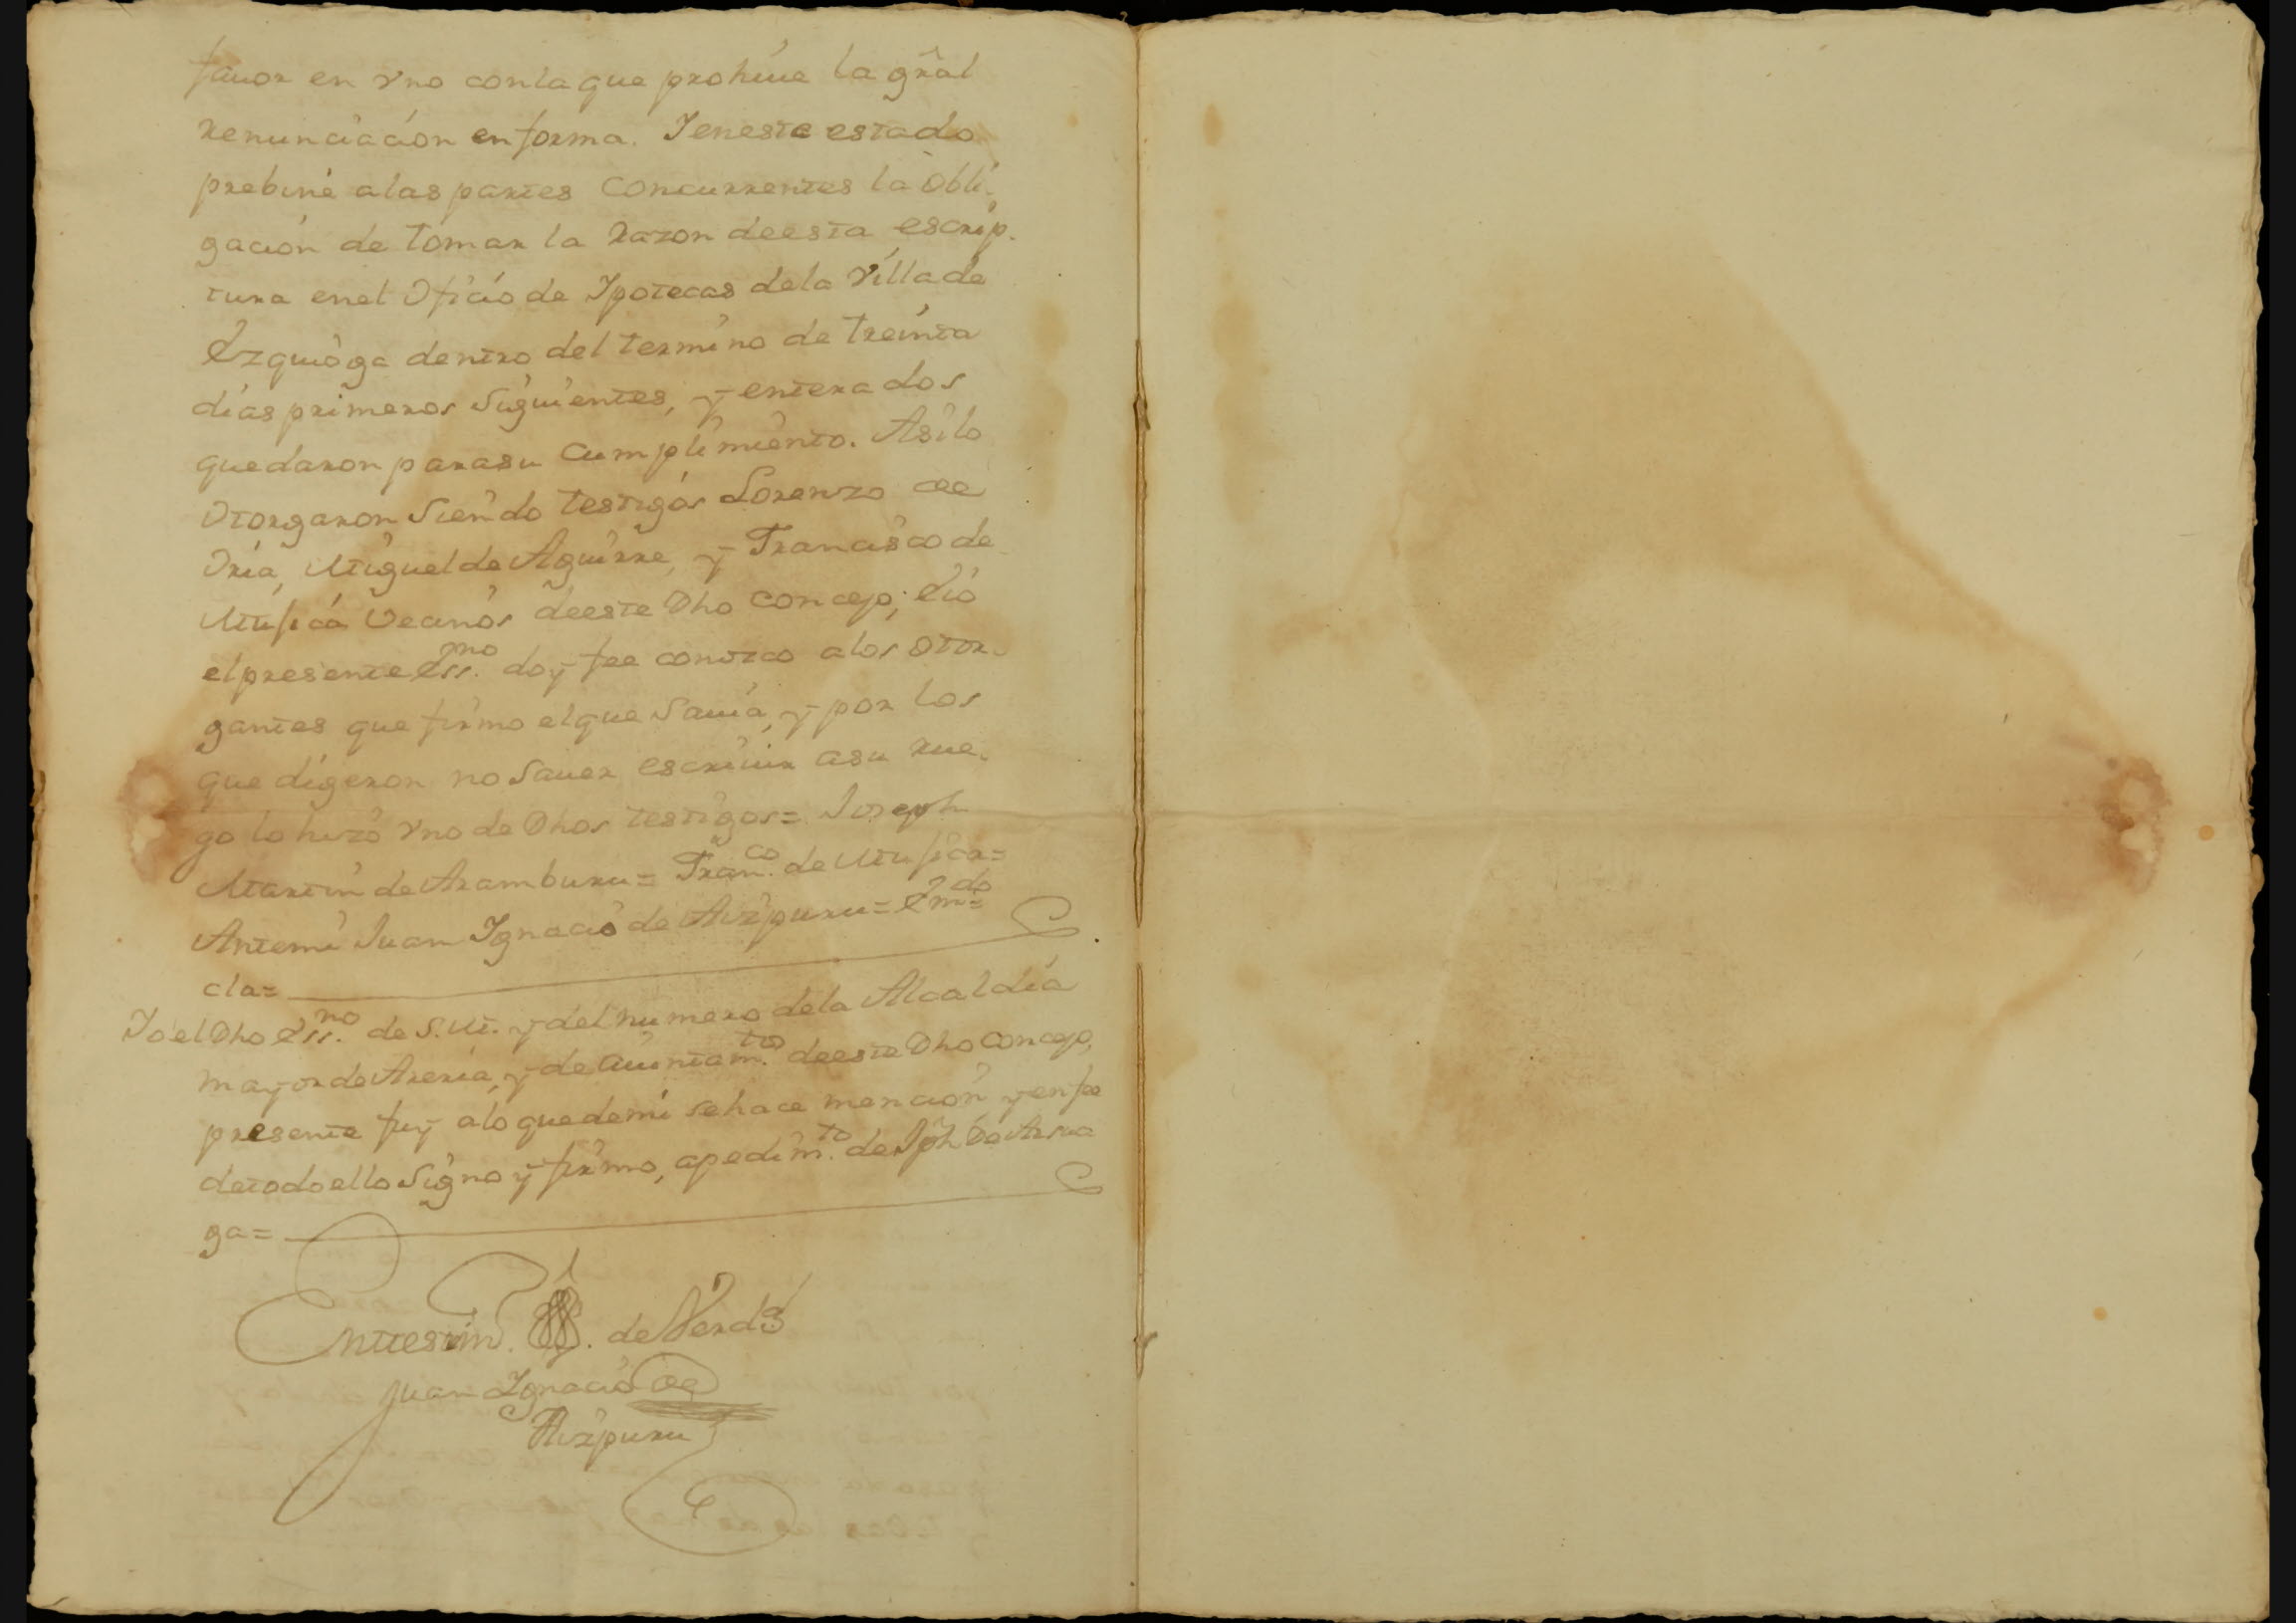 fauor en vno conla que prohiue la gr̃al
renunciacion en forma. Y en este estado
prebine alas partes concurrentes la obli-
gacion de tomar la razon de esta escrip-
tura enel Oficio de Ypotecas dela villa de
Ezquioga dentro del termino de treinta
dias primeros siguientes, y enterados
quedaron para su cumplimiento. Asi lo
otorgaron siendo testigos Lorenzo de
Oria, Miguel de Aguirre, y Francisco de
Mufica vecinos deeste Dho concejo; Eio
el presente Ess.no doy fee conozco a los otor-
gantes que firmo el que sauia, y por los
que digeron no sauer escriuir asu rue-
go lo hizo vno de Dhos testigos = Joseph
Martin de Aramburu = Fran.co de Mufica =
Antemi Juan Ygnacio de Aizpuru = Em.do
cla =
Yo el Dho Ess.no de S.M. y del numero dela Alcaldia
mayor de Areria, y de aiuntam.to deeste Dho concejo,
presente fuy alo que de mi se hace mencion y en fee
de todo ello signo y firmo, a pedim.to de Jph de Arsua
ga =
En testim.o de Verd.d
Juan Ygnacio de
Aizpuru